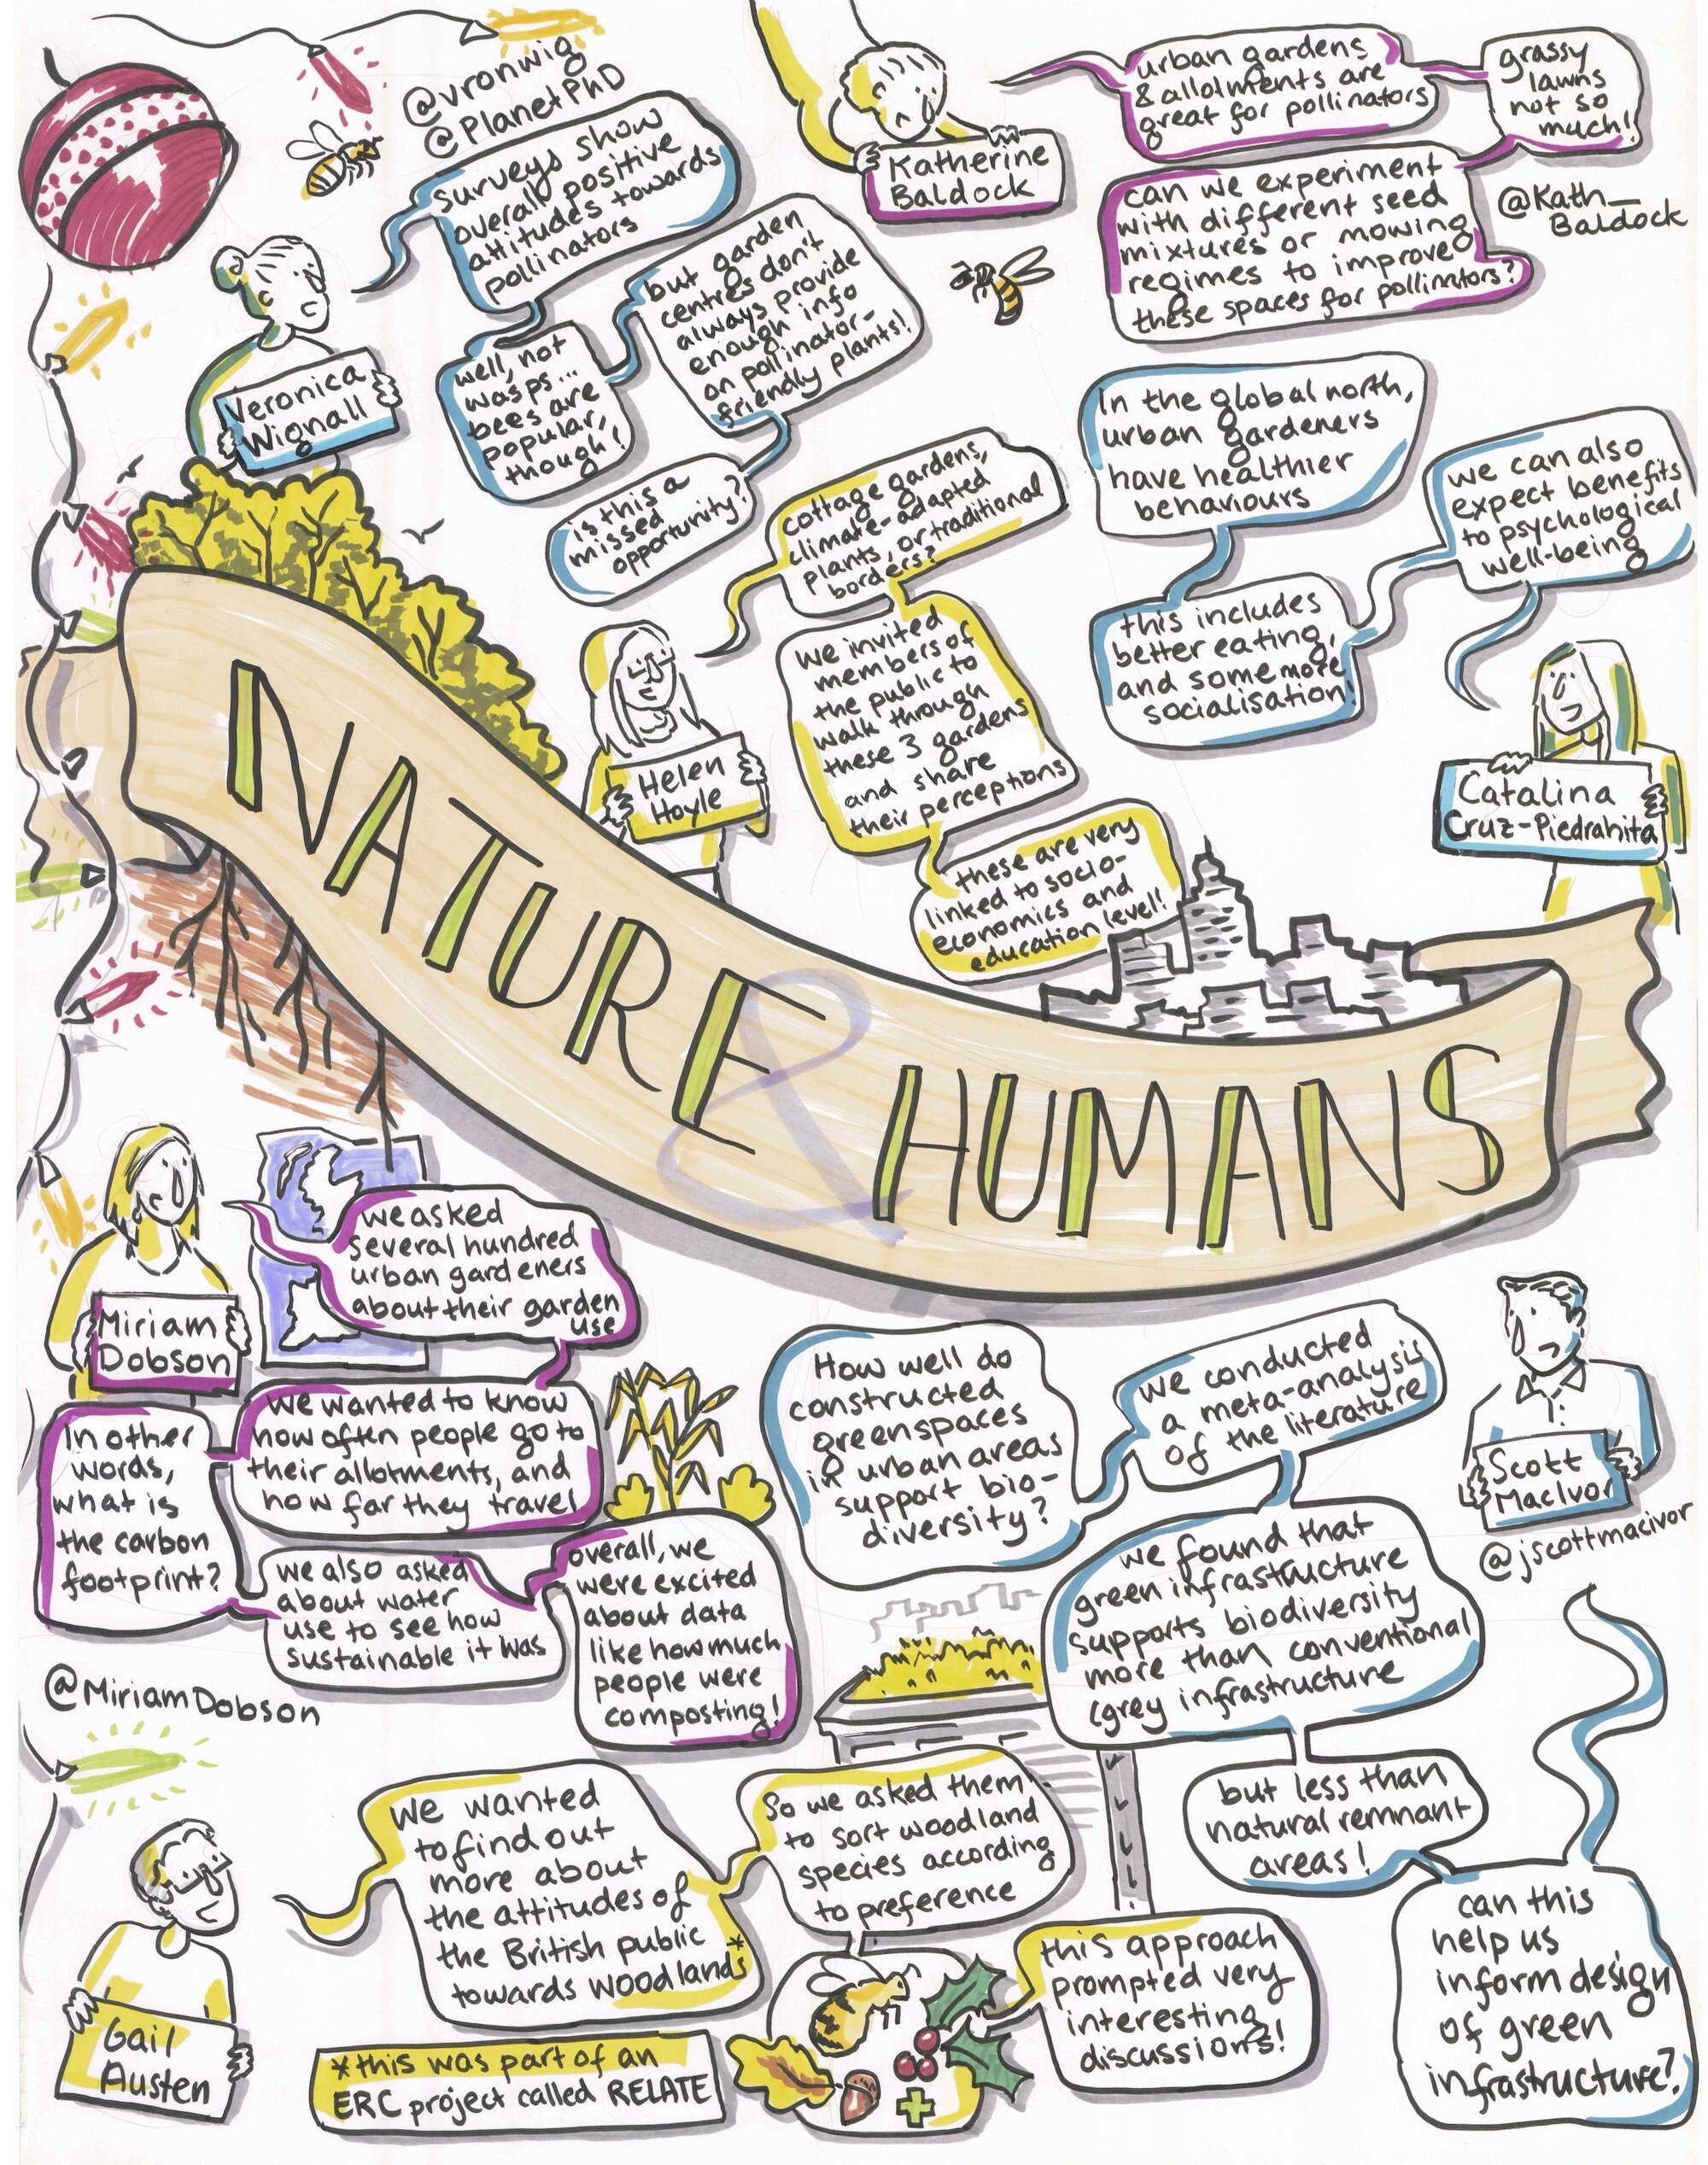 @vronwig
@PlanetPhD
surveys show
overall positive
attitudes towards
pollinators
well, not
wasps...
bees are
popular,
though!
but garden
centres don't
always provide
enough info
on pollinator-
friendly plants!
is this a
missed
opportunity?
Veronica
Wignall
Katherine
Baldock
urban gardens
& allotments are
great for pollinators
grassy
lawns
not so
much!
can we experiment
with different seed
mixtures or mowing
regimes to improve
these spaces for pollinators?
@Kath_
Baldock
cottage gardens,
climate-adapted
plants, or traditional
borders?
we invited
members of
the public to
walk through
these 3 gardens
and share
their perceptions
these are very
linked to socio-
economics and
education level!
Helen
Hoyle
In the global north,
urban gardeners
have healthier
behaviours
this includes
better eating,
and some more
socialisation!
we can also
expect benefits
to psychological
well-being
Catalina
Cruz-Piedrahita
NATURE & HUMANS
Miriam
Dobson
we asked
several hundred
urban gardeners
about their garden
use
we wanted to know
how often people go to
their allotments, and
how far they travel
In other
words,
what is
the carbon
footprint?
we also asked
about water
use to see how
sustainable it was
overall, we
were excited
about data
like how much
people were
composting!
@MiriamDobson
How well do
constructed
greenspaces
in urban areas
support bio-
diversity?
we conducted
a meta-analysis
of the literature
we found that
green infrastructure
supports biodiversity
more than conventional
(grey infrastructure
but less than
natural remnant
areas!
can this
help us
inform design
of green
infrastructure?
Scott
MacIvor
@jscottmacivor
Gail
Austen
we wanted
to find out
more about
the attitudes of
the British public
towards woodlands*
So we asked them
to sort woodland
species according
to preference
this approach
prompted very
interesting
discussions!
*this was part of an
ERC project called RELATE